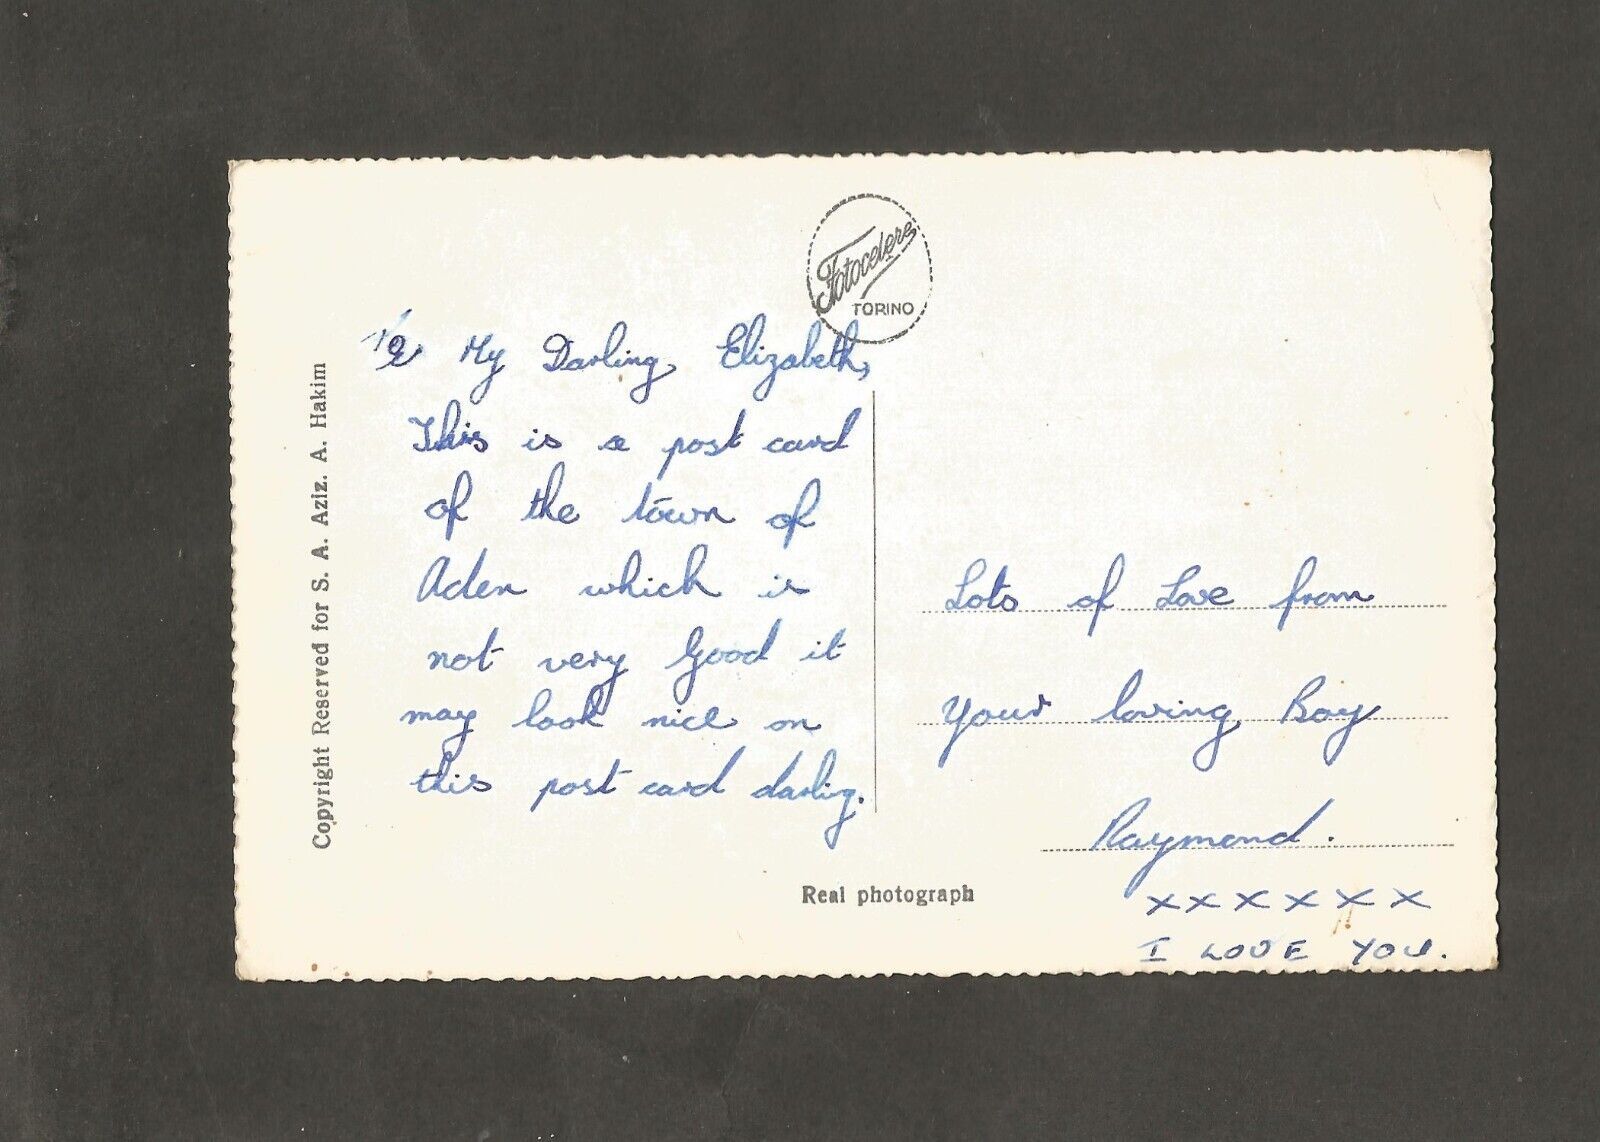 Fotocelere
TORINO
To My Darling Elizabeth,
This is a post card
of the town of
Aden which is
not very Good it
may look nice on
this post card darlig.
Lots of Love from
your loving Boy
Raymond.
xxxxxx
I LOVE YOU.
Real photograph
Copyright Reserved for S. A. Aziz. A. Hakim